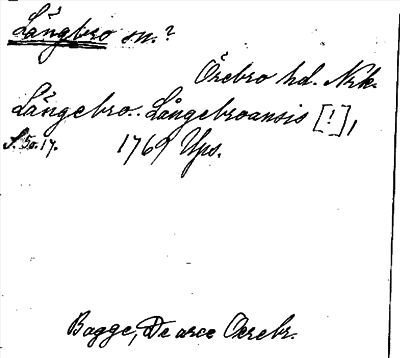 Långbro sn.?
Örebro hd. Nrk.
Långebro. Långebroansis [!],
S. 50. 17. 1769 Ups.
Bagge, De arce Oerebr.